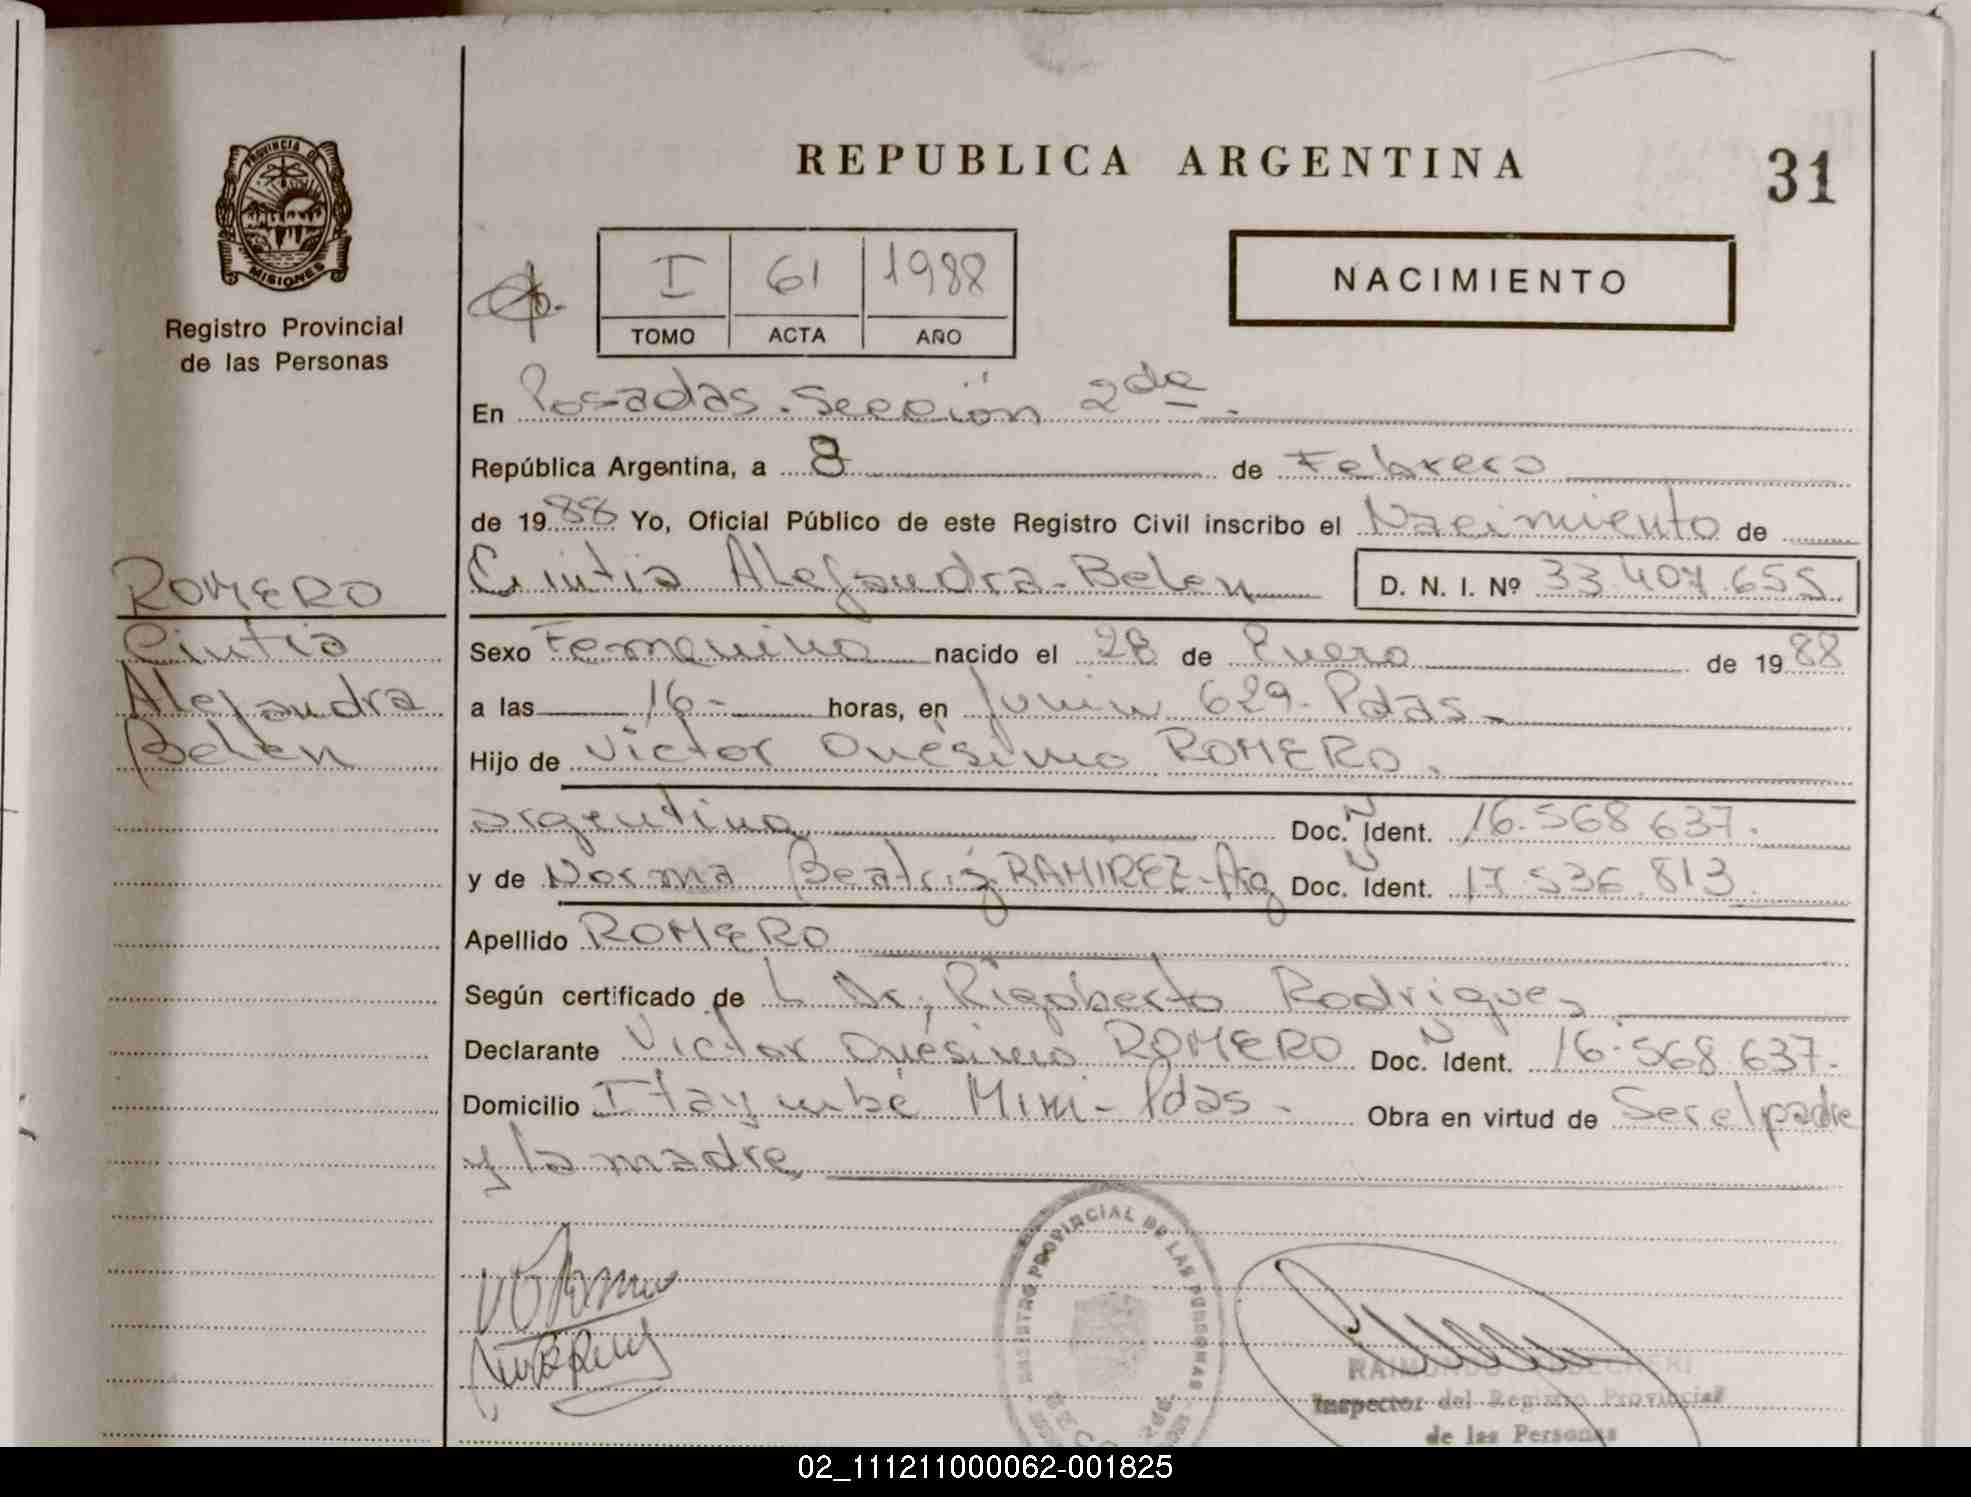 REPUBLICA ARGENTINA
31
PROVINCIA DE
MISIONES
Registro Provincial
de las Personas
I 61 1988
TOMO ACTA AÑO
NACIMIENTO
En Posadas. Sección 2da.
República Argentina, a 8 de Febrero
de 1988 Yo, Oficial Público de este Registro Civil inscribo el Nacimiento de
Cintia Alejandra Belen D. N. I. Nº 33.407.655
ROMERO
Cintia
Alejandra
Belen
Sexo Femenino nacido el 28 de Enero de 1988
a las 16 - horas, en Junin 629 - Pdas -
Hijo de Victor Onésimo ROMERO.
argentino Doc. N Ident. 16.568.637.
y de Norma Beatriz RAMIREZ - Arg Doc. N Ident. 17.536.813
Apellido ROMERO
Según certificado de L Dr. Rigoberto Rodriguez
Declarante Victor Onésimo ROMERO Doc. N Ident. 16.568.637.
Domicilio Itaymbé Mini - Pdas - Obra en virtud de Ser el padre
y la madre
REGISTRO PROVINCIAL DE LAS PERSONAS
Inspector del Registro Provincial
de las Personas
02_111211000062-001825